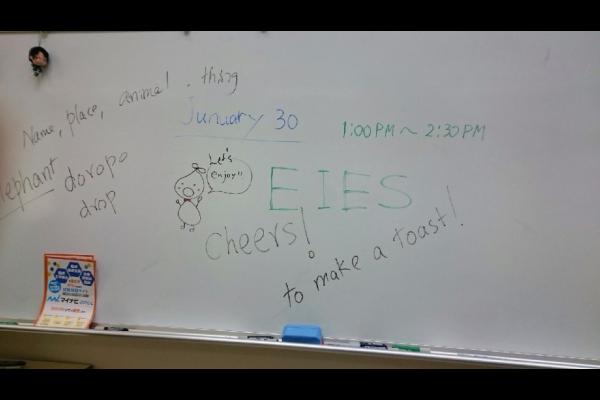 Name, place, animal, thing
Junuary 30
1:00PM ~ 2:30PM
elephant doropo
drop
Let's
enjoy!!
EIES
Cheers!
to make a toast!
マイナビ